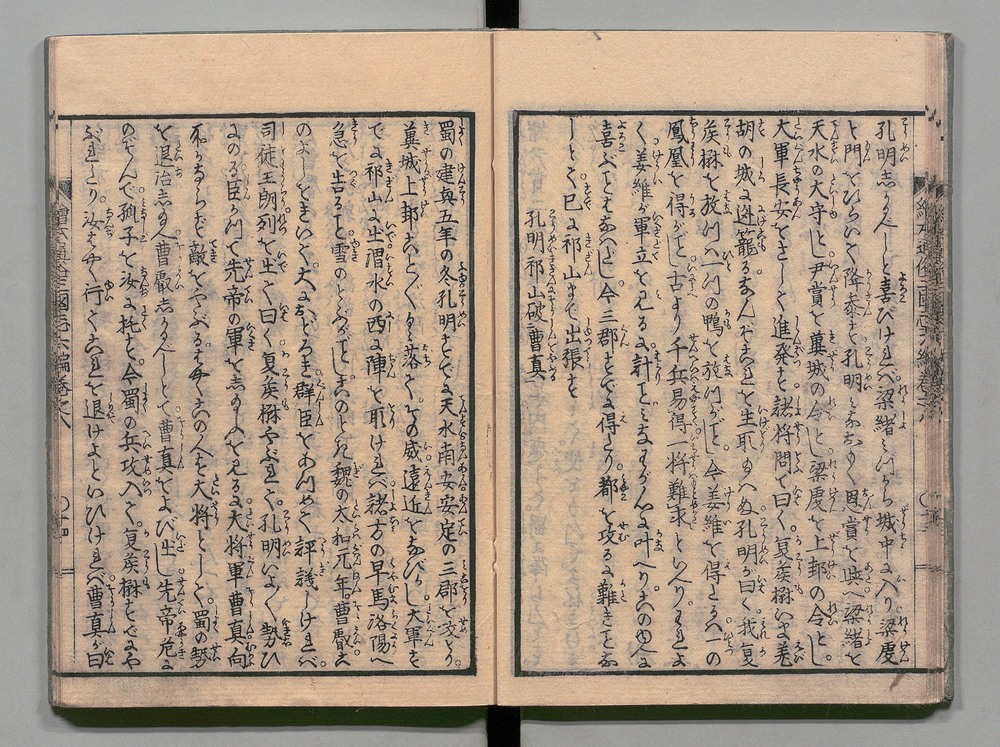 孔明志かるべしと喜びけれバ梁緒ミづから城中に入り梁虔
と門をひらいて降参す孔明ミなあつく恩賞を與へ梁緒を
天水の大守とし尹賞を冀城の令とし梁虔を上邽の令とし
大軍長安をさして進発す諸将問て曰く夏侯楙いま羌
胡の城に逃籠るなんぞこれを生取給ハぬ孔明が曰く我夏
侯楙を放つハ一つの鴨を放つがごとし今姜維を得たるハ一つの
鳳凰を得がごとし古より千兵易得一将難求といへりわれよ
く姜維が軍立を見るに計ことミなすがんに叶へりこの男人に
喜ぶことなかハし今三郡すでに得たり都を攻るに難きことな
しとて已に祁山まで出張す
孔明祁山破曹真
蜀の建興五年の冬孔明すでに天水南安安定の三郡を攻とり
冀城上邽ことごとく落てその威遠近をなびかし大軍す
でに祁山に出渭水の西に陣を取けれバ諸方の早馬洛陽へ
急を告ること雪のとぶごとしこのとき魏の太和元年曹叡こ
のよしをきいて大におどろき群臣をあつめて評議しけれバ
司徒王朗列を出て曰く夏侯楙やぶれて孔明いよいよ勢ひ
にのる臣かつて先帝の軍をしたまふを見るに大将軍曹真向
ふかならず敵をやぶるはやくこの人を大将として蜀の勢
を退治志給へ曹叡志かるべしとて曹真をよび出し先帝危に
のぞんで孤子を汝に托す今蜀の兵攻入て夏侯楙すでにや
ぶれたり汝はやく行てこれを退けよといひけれバ曹真が曰
繪本通俗三國志六編巻之八
十四